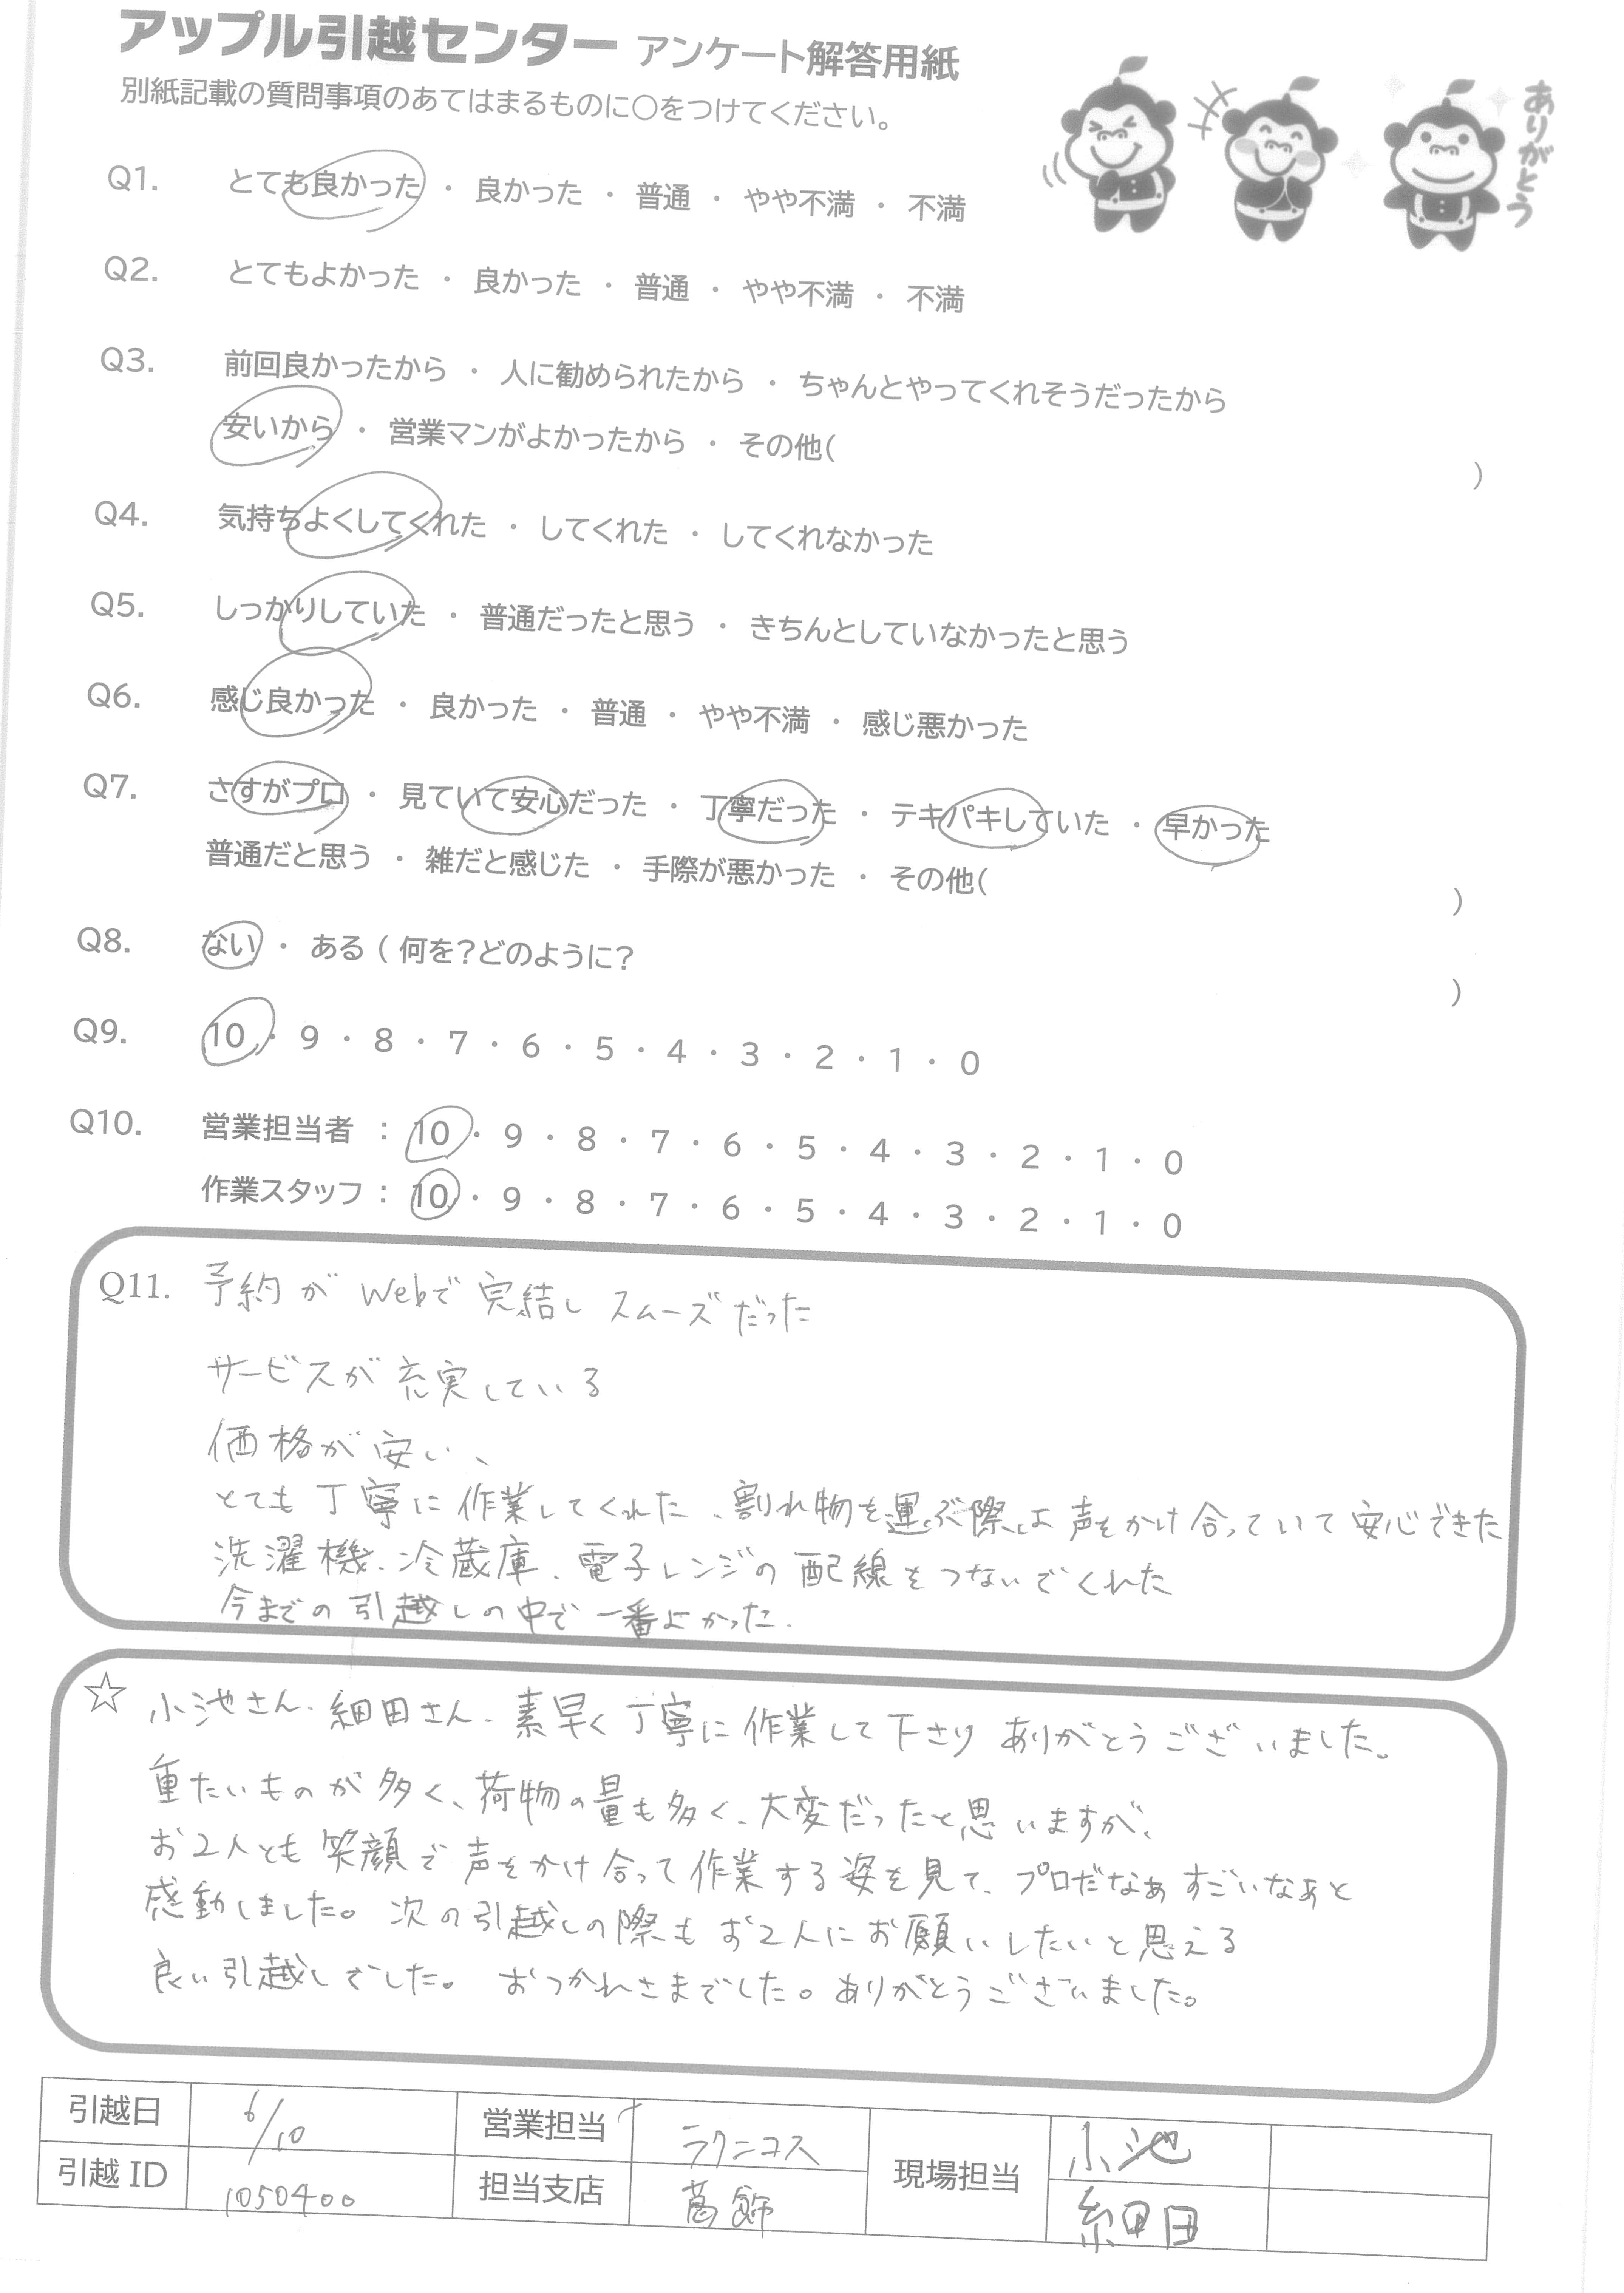 アップル引越センター アンケート解答用紙
別紙記載の質問事項のあてはまるものに○をつけてください。
ありがとう
Q1. とても良かった ・ 良かった ・ 普通 ・ やや不満 ・ 不満
Q2. とてもよかった ・ 良かった ・ 普通 ・ やや不満 ・ 不満
Q3. 前回良かったから ・ 人に勧められたから ・ ちゃんとやってくれそうだったから
安いから ・ 営業マンがよかったから ・ その他( )
Q4. 気持ちよくしてくれた ・ してくれた ・ してくれなかった
Q5. しっかりしていた ・ 普通だったと思う ・ きちんとしていなかったと思う
Q6. 感じ良かった ・ 良かった ・ 普通 ・ やや不満 ・ 感じ悪かった
Q7. さすがプロ ・ 見ていて安心だった ・ 丁寧だった ・ テキパキしていた ・ 早かった
普通だと思う ・ 雑だと感じた ・ 手際が悪かった ・ その他( )
Q8. ない ・ ある ( 何を?どのように? )
Q9. 10 ・ 9 ・ 8 ・ 7 ・ 6 ・ 5 ・ 4 ・ 3 ・ 2 ・ 1 ・ 0
Q10. 営業担当者 : 10 ・ 9 ・ 8 ・ 7 ・ 6 ・ 5 ・ 4 ・ 3 ・ 2 ・ 1 ・ 0
作業スタッフ : 10 ・ 9 ・ 8 ・ 7 ・ 6 ・ 5 ・ 4 ・ 3 ・ 2 ・ 1 ・ 0
Q11. 予約が Webで 完結し スムーズだった
サービスが充実している
価格が安い、
とても丁寧に作業してくれた、割れ物を運ぶ際は声をかけ合っていて安心できた
洗濯機、冷蔵庫、電子レンジの配線をつないでくれた
今までの引越しの中で一番よかった.
☆ 小池さん、細田さん、素早く丁寧に作業して下さり ありがとうございました。
重たいものが多く、荷物の量も多く、大変だったと思いますが、
お2人とも笑顔で声をかけ合って作業する姿を見て、プロだなぁ すごいなぁと
感動しました。次の引越しの際もお2人にお願いしたいと思える
良い引越しでした。 おつかれさまでした。ありがとうございました。
引越日 6/10 営業担当 ラクニコス 現場担当 小池
引越 ID 1050400 担当支店 葛飾 細田